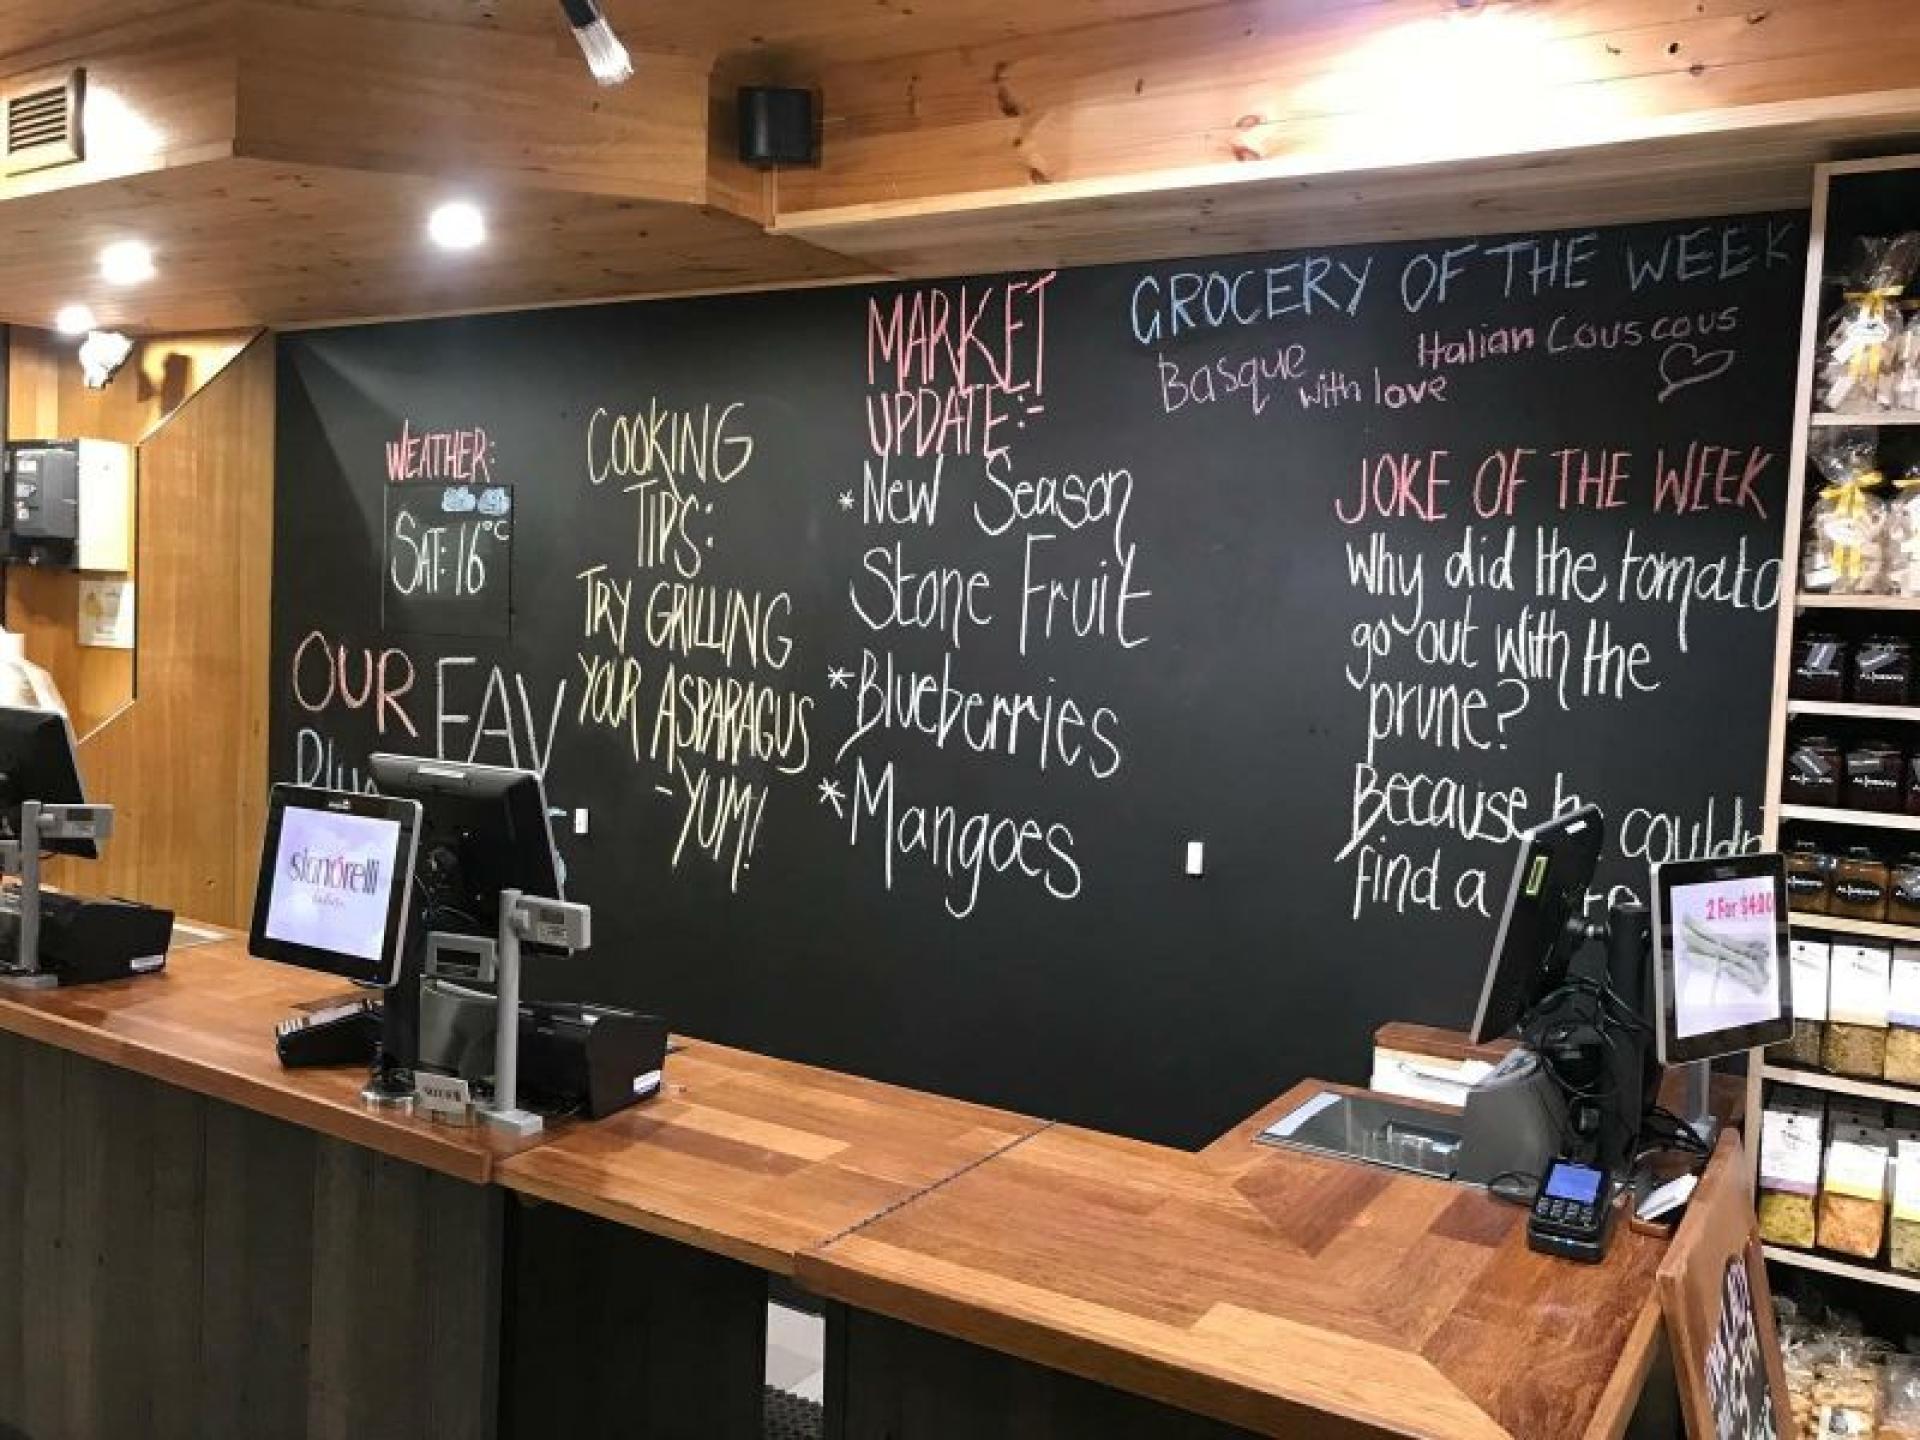 WEATHER:
SAT: 16°C
OUR FAV
COOKING
TIPS:
TRY GRILLING
YOUR ASPARAGUS
-YUM!
MARKET
UPDATE:-
*New Season
Stone Fruit
*Blueberries
*Mangoes
GROCERY OF THE WEEK
Basque with love
Italian Couscous
JOKE OF THE WEEK
Why did the tomato
go out with the
prune?
Because
find a
signorelli
2 For $4.00